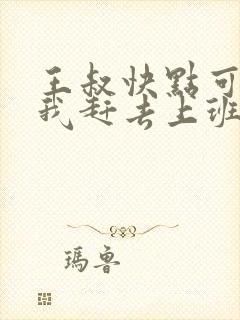 王叔快點可
我赶去上班
瑪魯